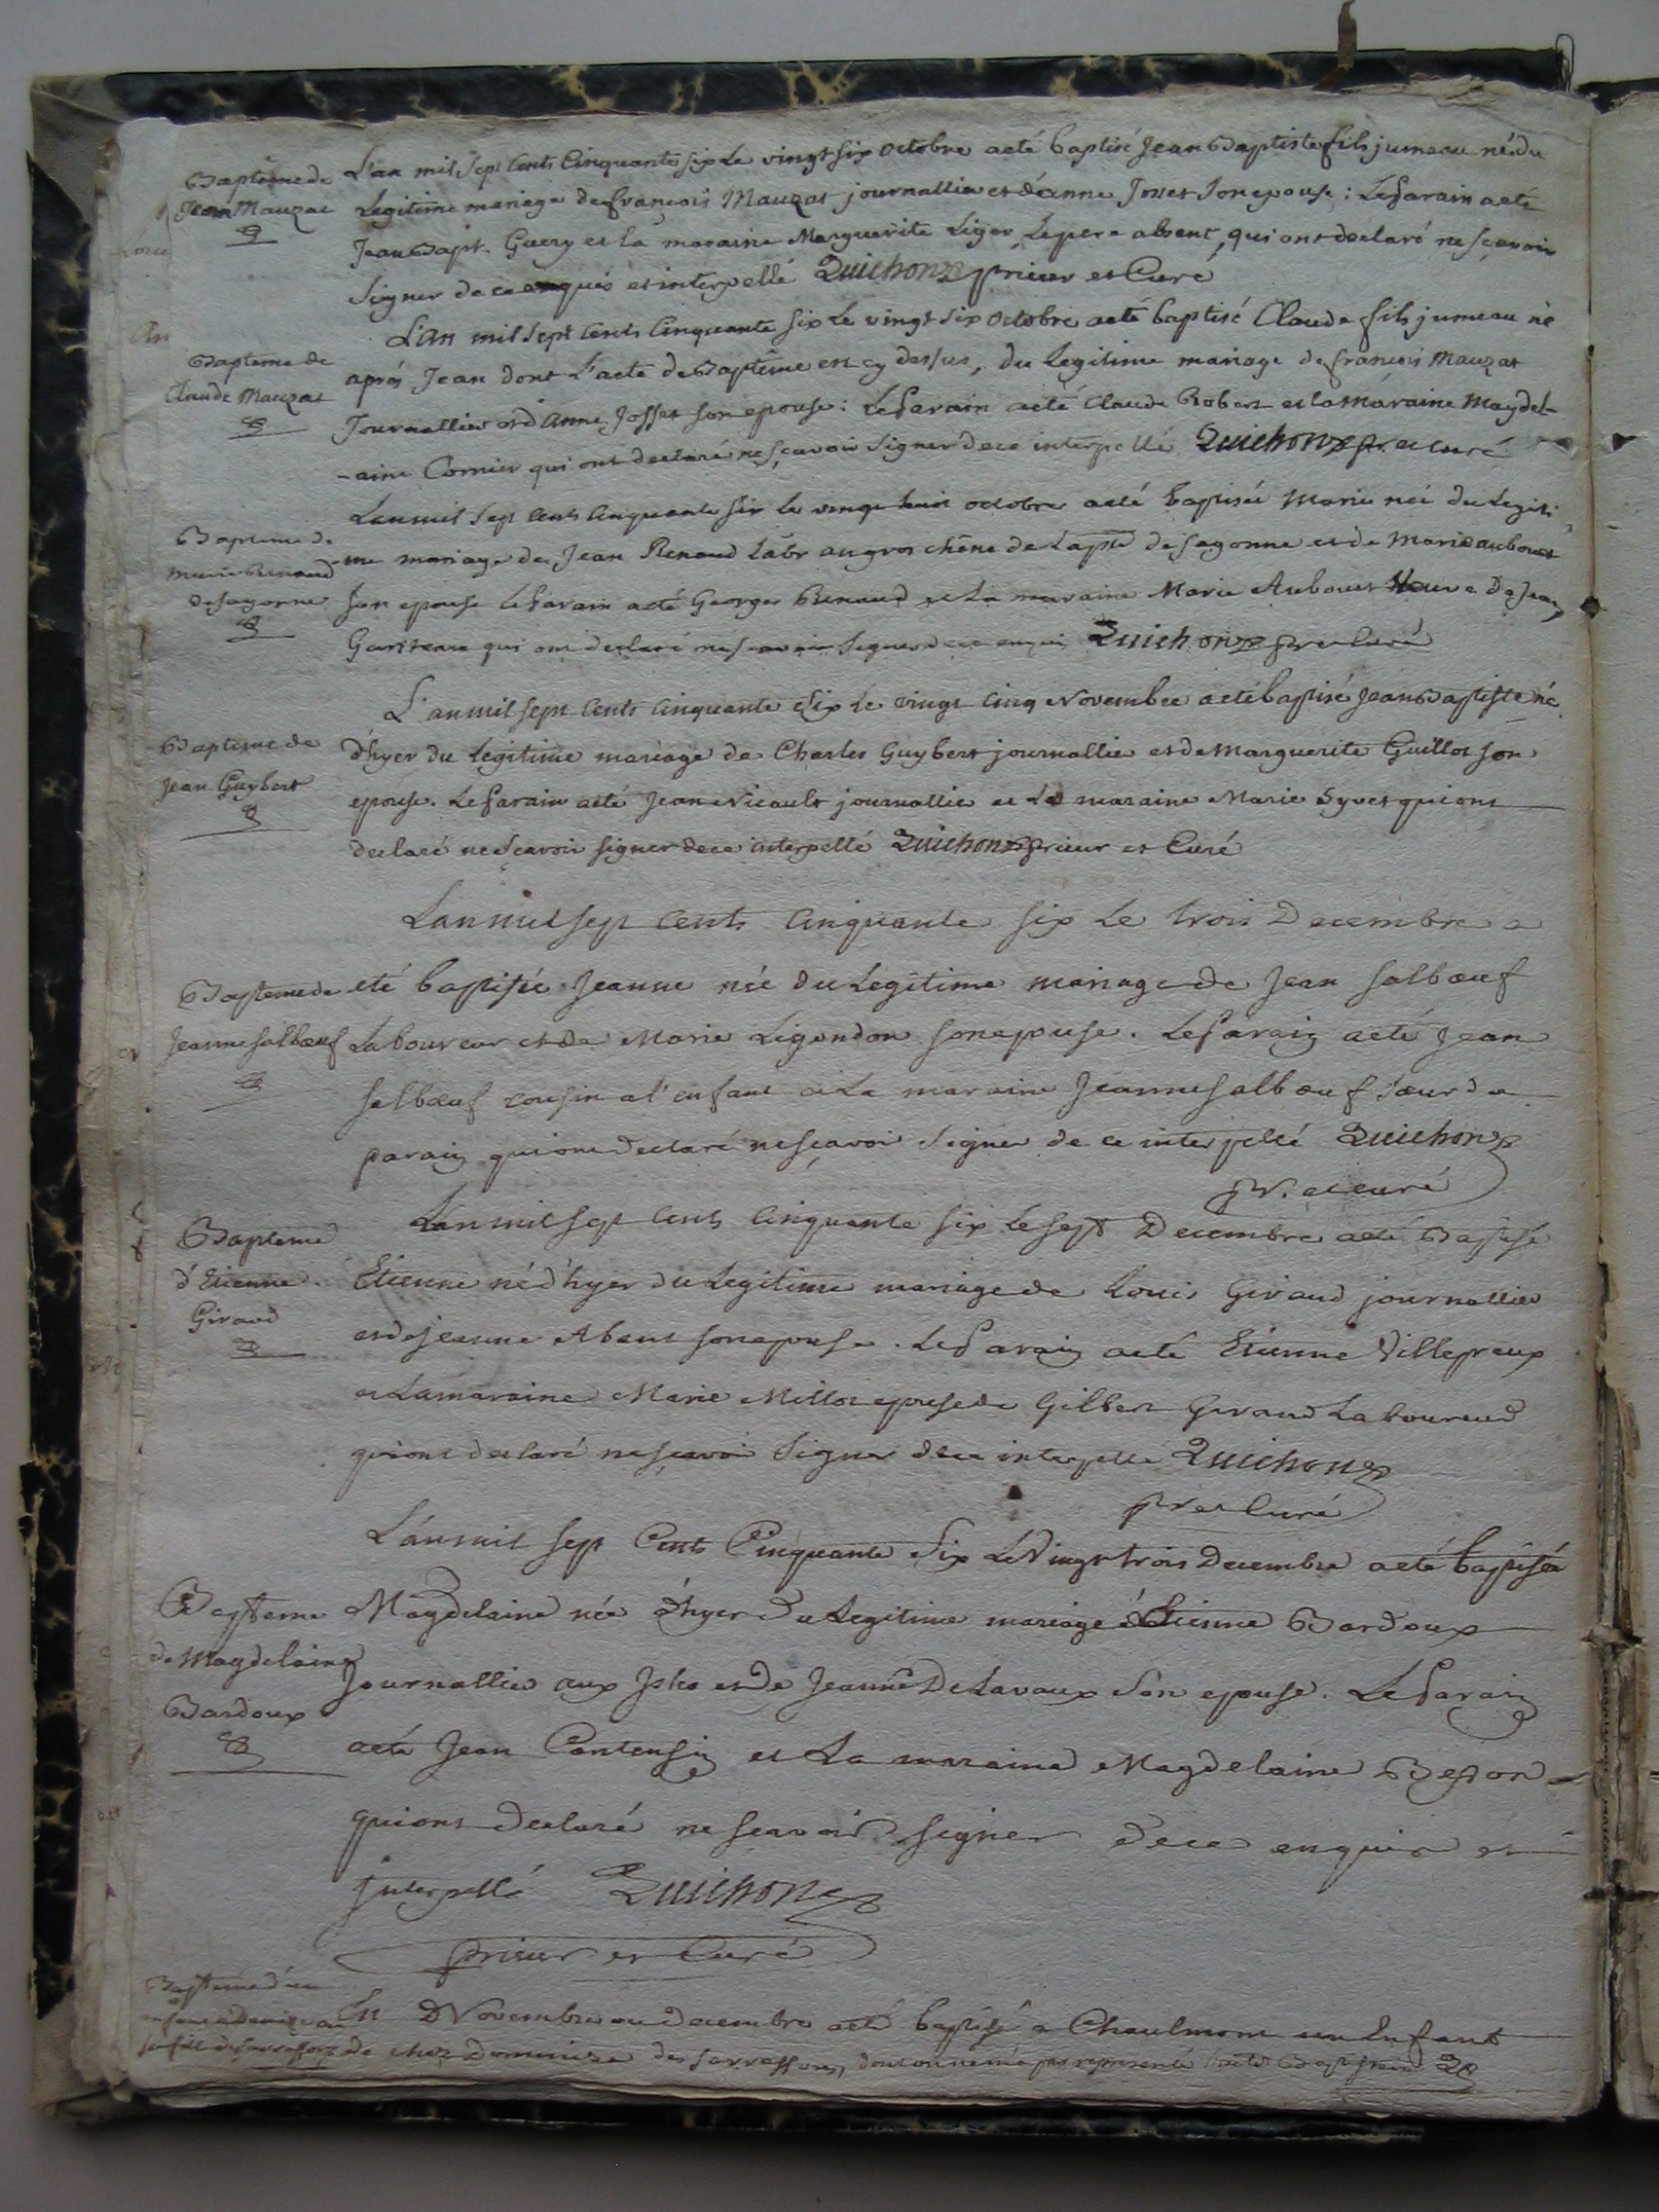 Baptême de
Jean Mauzat
L'an mil sept cents Cinquante six Le vingt six octobre a eté baptisé Jean Baptiste fils jumeau né du
Legitime mariage de françois Mauzat journallier et d'anne Josset son epouse : Le Parain a eté
Jean Bapt. Guery et la maraine Marguerite Liger, Le pere absent, qui ont declaré ne sçavoir
signer de ce enquis et interpellé Quichon prieur et Curé
Bapteme de
Claude Mauzat
L'An mil sept cents Cinquante six Le vingt six octobre a eté baptisé Claude fils jumeau né
après Jean dont L'acte de Baptême est cy dessus, du Legitime mariage de françois Mauzat
Journallier et d'Anne Josset son epouse : Le Parain a eté Claude Robert et la maraine Magdel-
-aine Cornier qui ont declaré ne sçavoir signer de ce interpellé Quichon pr. et curé
Bapteme de
Marie Renaud
de sagonne
L'an mil sept cents Cinquante six Le vingt huit octobre a eté baptisée Marie née du Legiti
-me mariage de Jean Renaud Labr au gros chêne de La psse de sagonne et de Marie aubouet
son epouse Le Parain a eté Georges Renaud et La maraine Marie Aubouet Veuve De Jean
qui ont declaré ne sçavoir signer de ce enquis Quichon pr et Curé
Bapteme de
Jean Guybert
L'an mil sept cents cinquante Six Le vingt cinq Novembre a eté baptisé Jean Baptiste né
d'hyer du Legitime mariage de Charles Guybert journallier et de Marguerite Guillot son
epouse. Le Parain a eté Jean Nicault journallier et La maraine Marie Syvet qui ont
declaré ne sçavoir signer de ce interpellé Quichon prieur et Curé
Bapteme de
Jeanne salbœuf
L'an mil sept Cents Cinquante six Le trois Decembre a
eté baptisée Jeanne née du Legitime mariage de Jean salbœuf
Laboureur et de Marie Ligondon son epouse. Le Parain a eté Jean
salbœuf cousin a l'enfant et La maraine Jeanne salbœuf sœur de
parain qui ont declaré ne sçavoir signer de ce interpellé Quichon
pr. et curé
Bapteme
d'Etienne
Giraud
L'an mil sept Cents Cinquante six Le sept Decembre a eté Baptisé
Etienne né d'hyer du Legitime mariage de Louis Giraud journallier
et de jeanne Abent son epouse. Le Parain a eté Etienne Villepreux
et La maraine Marie Millot epouse de Gilbert Geraud Laboureur
qui ont declaré ne sçavoir signer de ce interpellé Quichon
pr et Curé
Bapteme
de Magdelaine
Bardoux
L'an mil sept Cents Cinquante Six Le Vingt trois Decembre a eté baptisée
Magdelaine née d'hyer du Legitime mariage d'Etienne Bardoux
Journallier aux Isles et de Jeanne Delavaux son epouse. Le Parain
a eté Jean Contensin et La maraine Magdelaine
qui ont declaré ne sçavoir signer de ce enquis et
interpellé Quichon
prieur et Curé
Bapteme d'un
En Novembre ou Decembre a eté baptisé a Chaulmont un Enfant
de chez Domine des